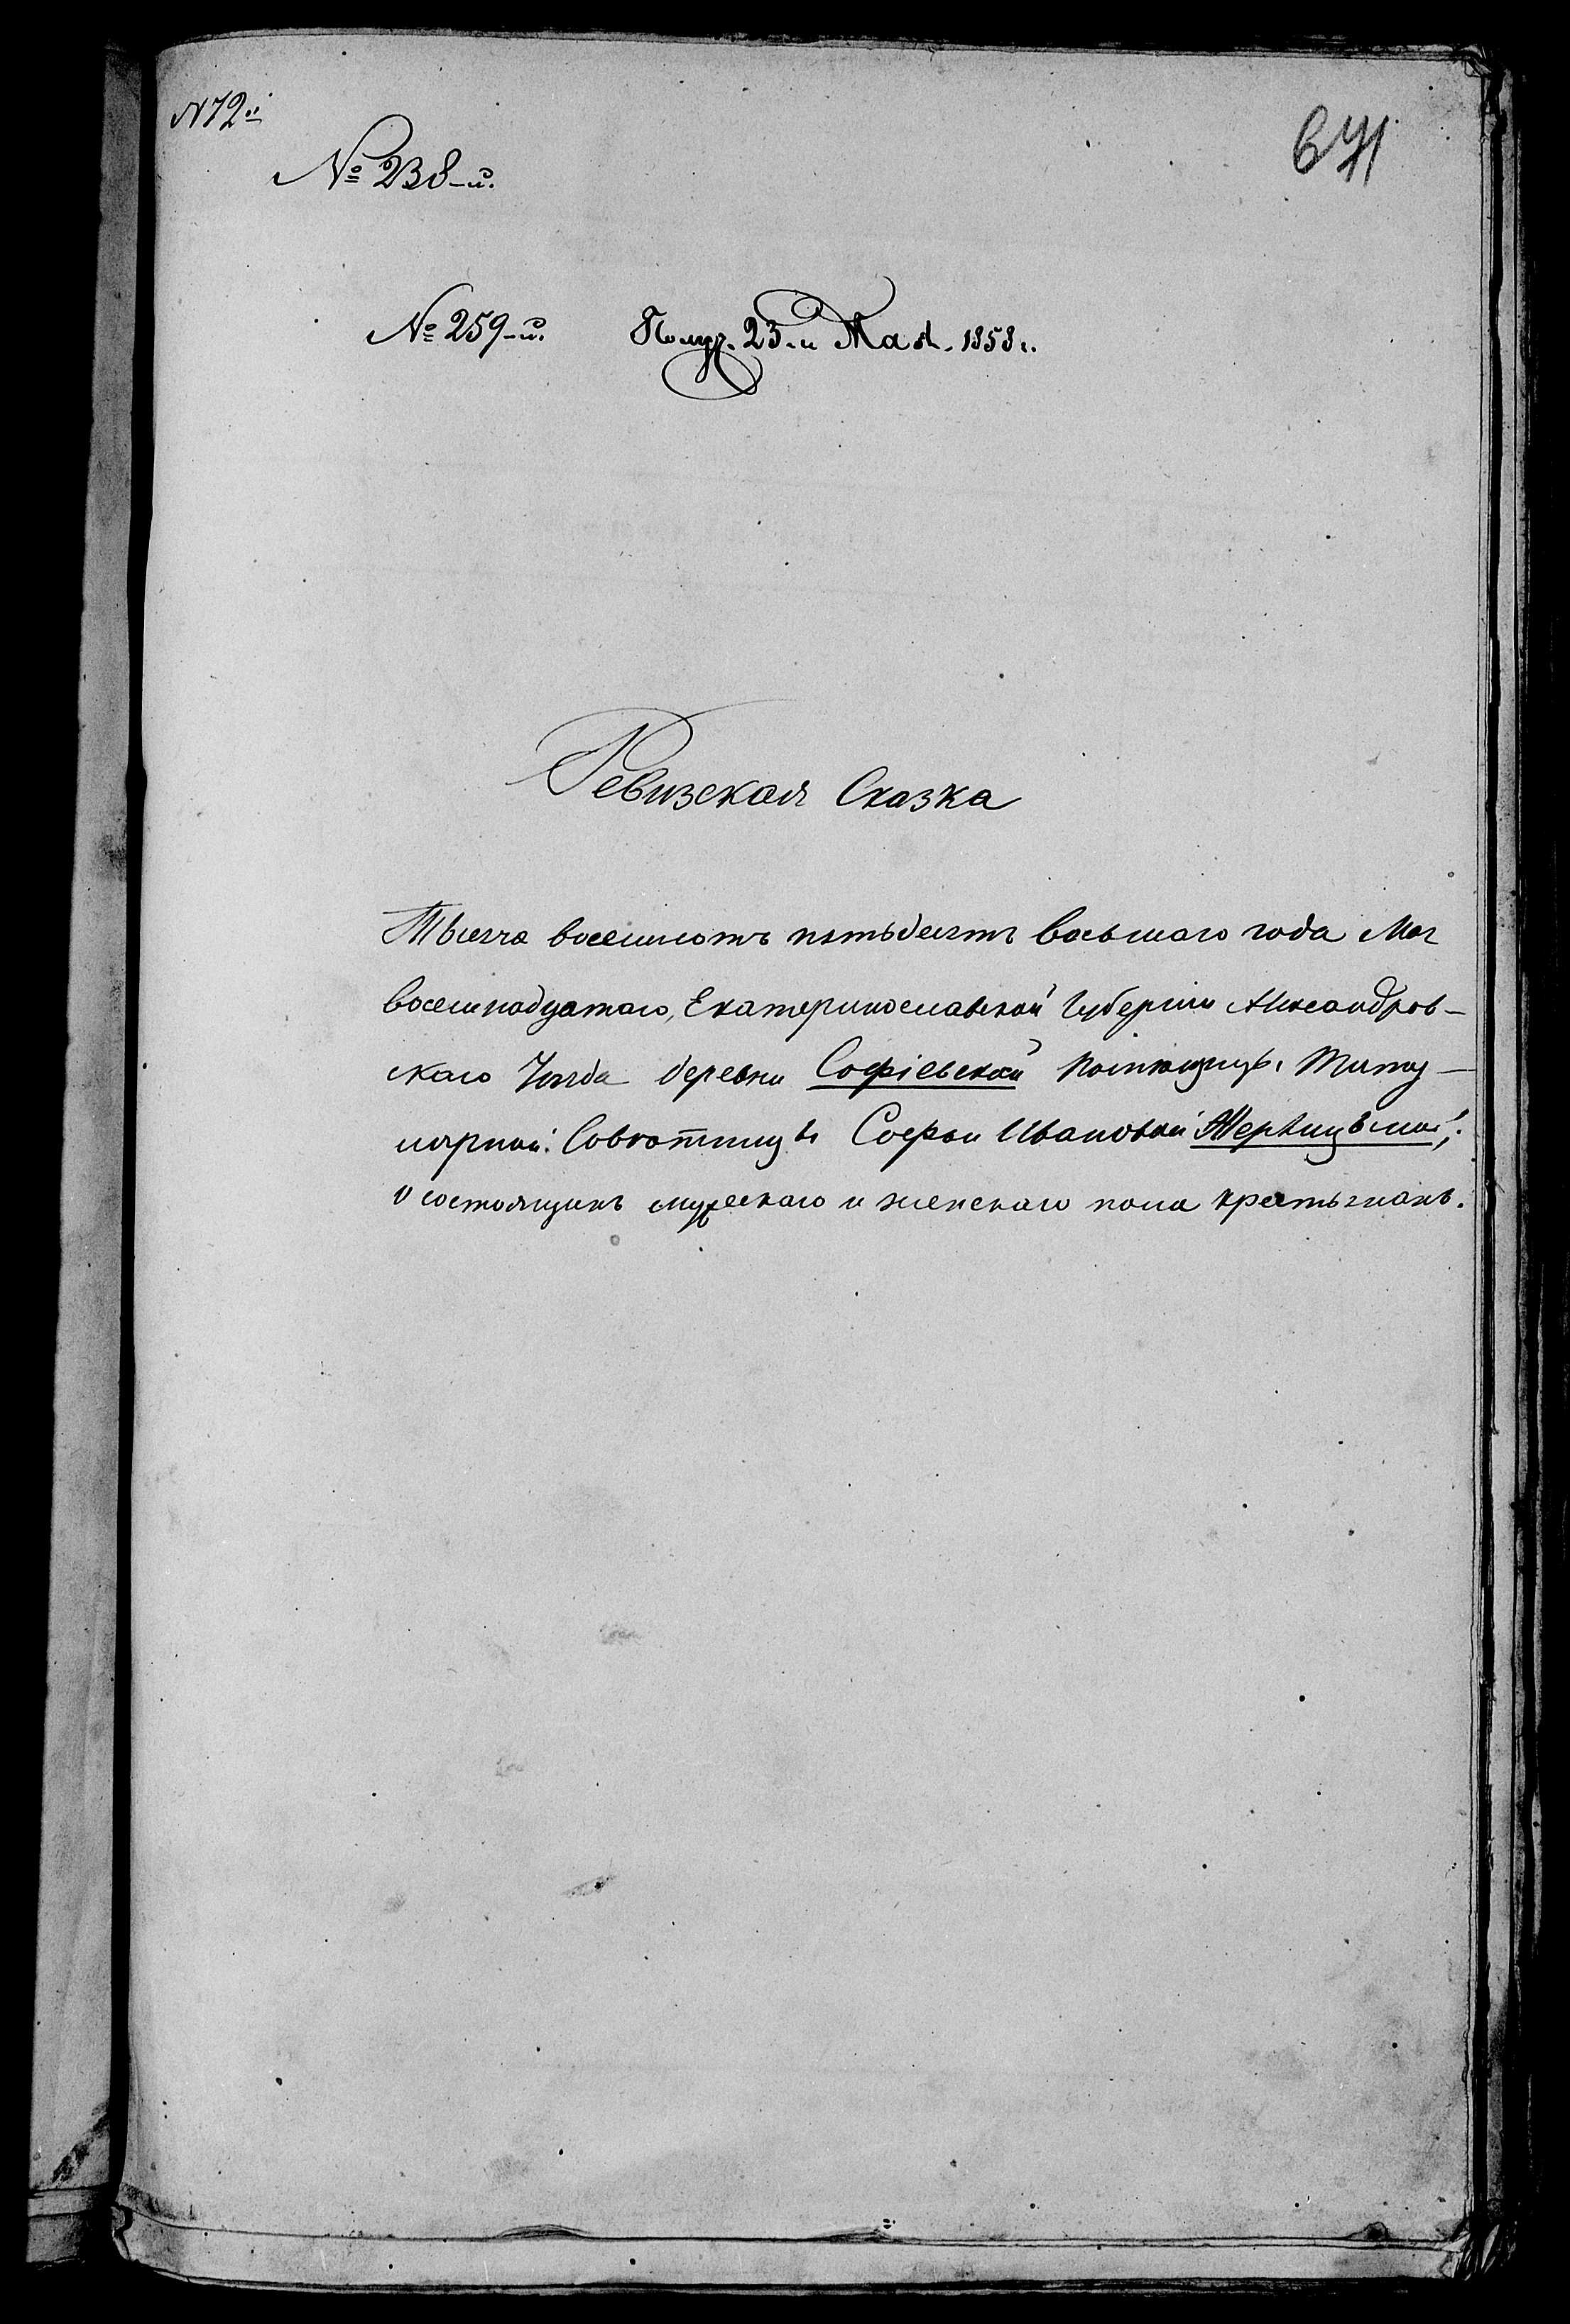 N 72й
671
№ 238-й.
№ 259-й. Получ. 23-и Мая. 1858 г.
Ревизская Сказка
Тысяча восемьсотъ пятьдесятъ восьмаго года Мая
восемнадцатаго, Екатеринославской Губерніи Александров-
скаго Уезда деревни Софіевской помѣщицы Титу-
лярной Совѣтницы Софьи Ивановой
о состоящихъ мужескаго и женскаго пола крестьянахъ.